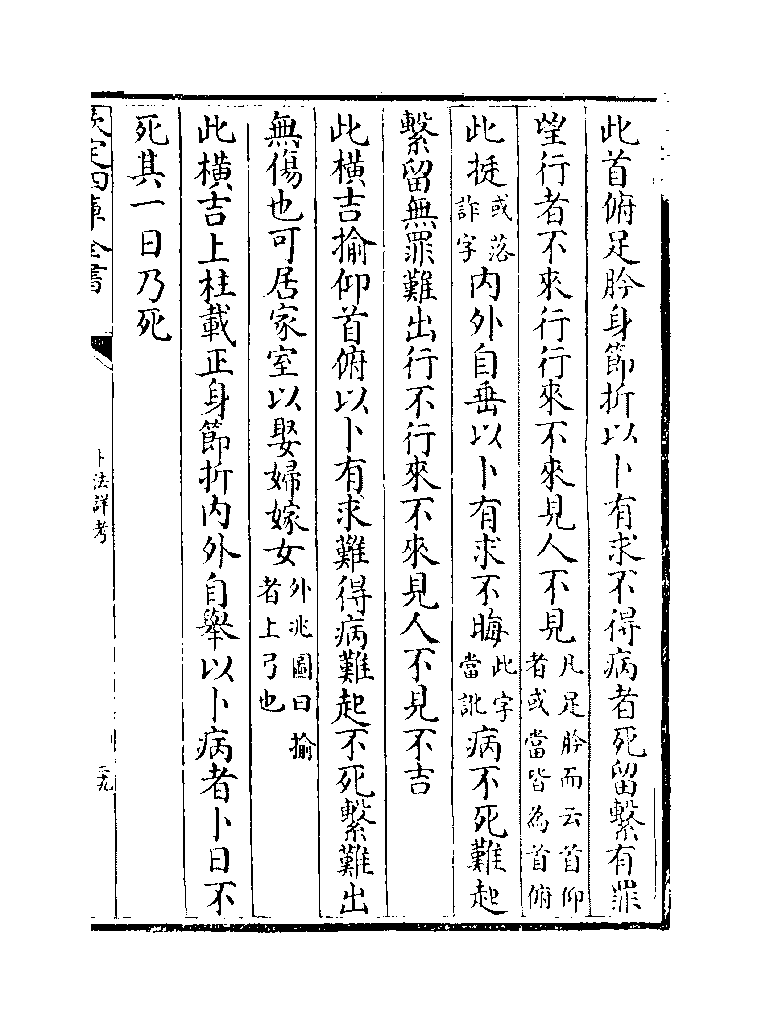 此首俯足肣身節折以卜有求不得病者死留繫有罪
望行者不來行行來不來見人不見凡足肣而云首仰者或當皆為首俯
此挺或落詐字內外自垂以卜有求不晦此字當訛病不死難起
繫留無罪難出行不行來不來見人不見不吉
此橫吉揄仰首俯以卜有求難得病難起不死繫難出
無傷也可居家室以娶婦嫁女外兆圖曰揄者上弓也
此橫吉上柱載正身節折內外自舉以卜病者卜日不
死其一日乃死
欽定四庫全書
卜法詳考